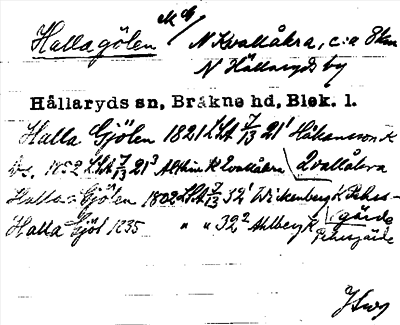 Hallagölen
N Kvallåkra, c:a 8 km
N Hällaryds by
Hällaryds sn, Bräkne hd, Blek. l.
Halla Gjölen 1821 Lht 7/13 21¹ Håkansson K
1852 Lht 7/13 21³ K Qvallåkra Qvallåkra
Halla Gjölen 1802 Lht 7/13 32¹ Wickenberg K
gärde
Halla Gjöl 1235 " " 32² Ahlberg K